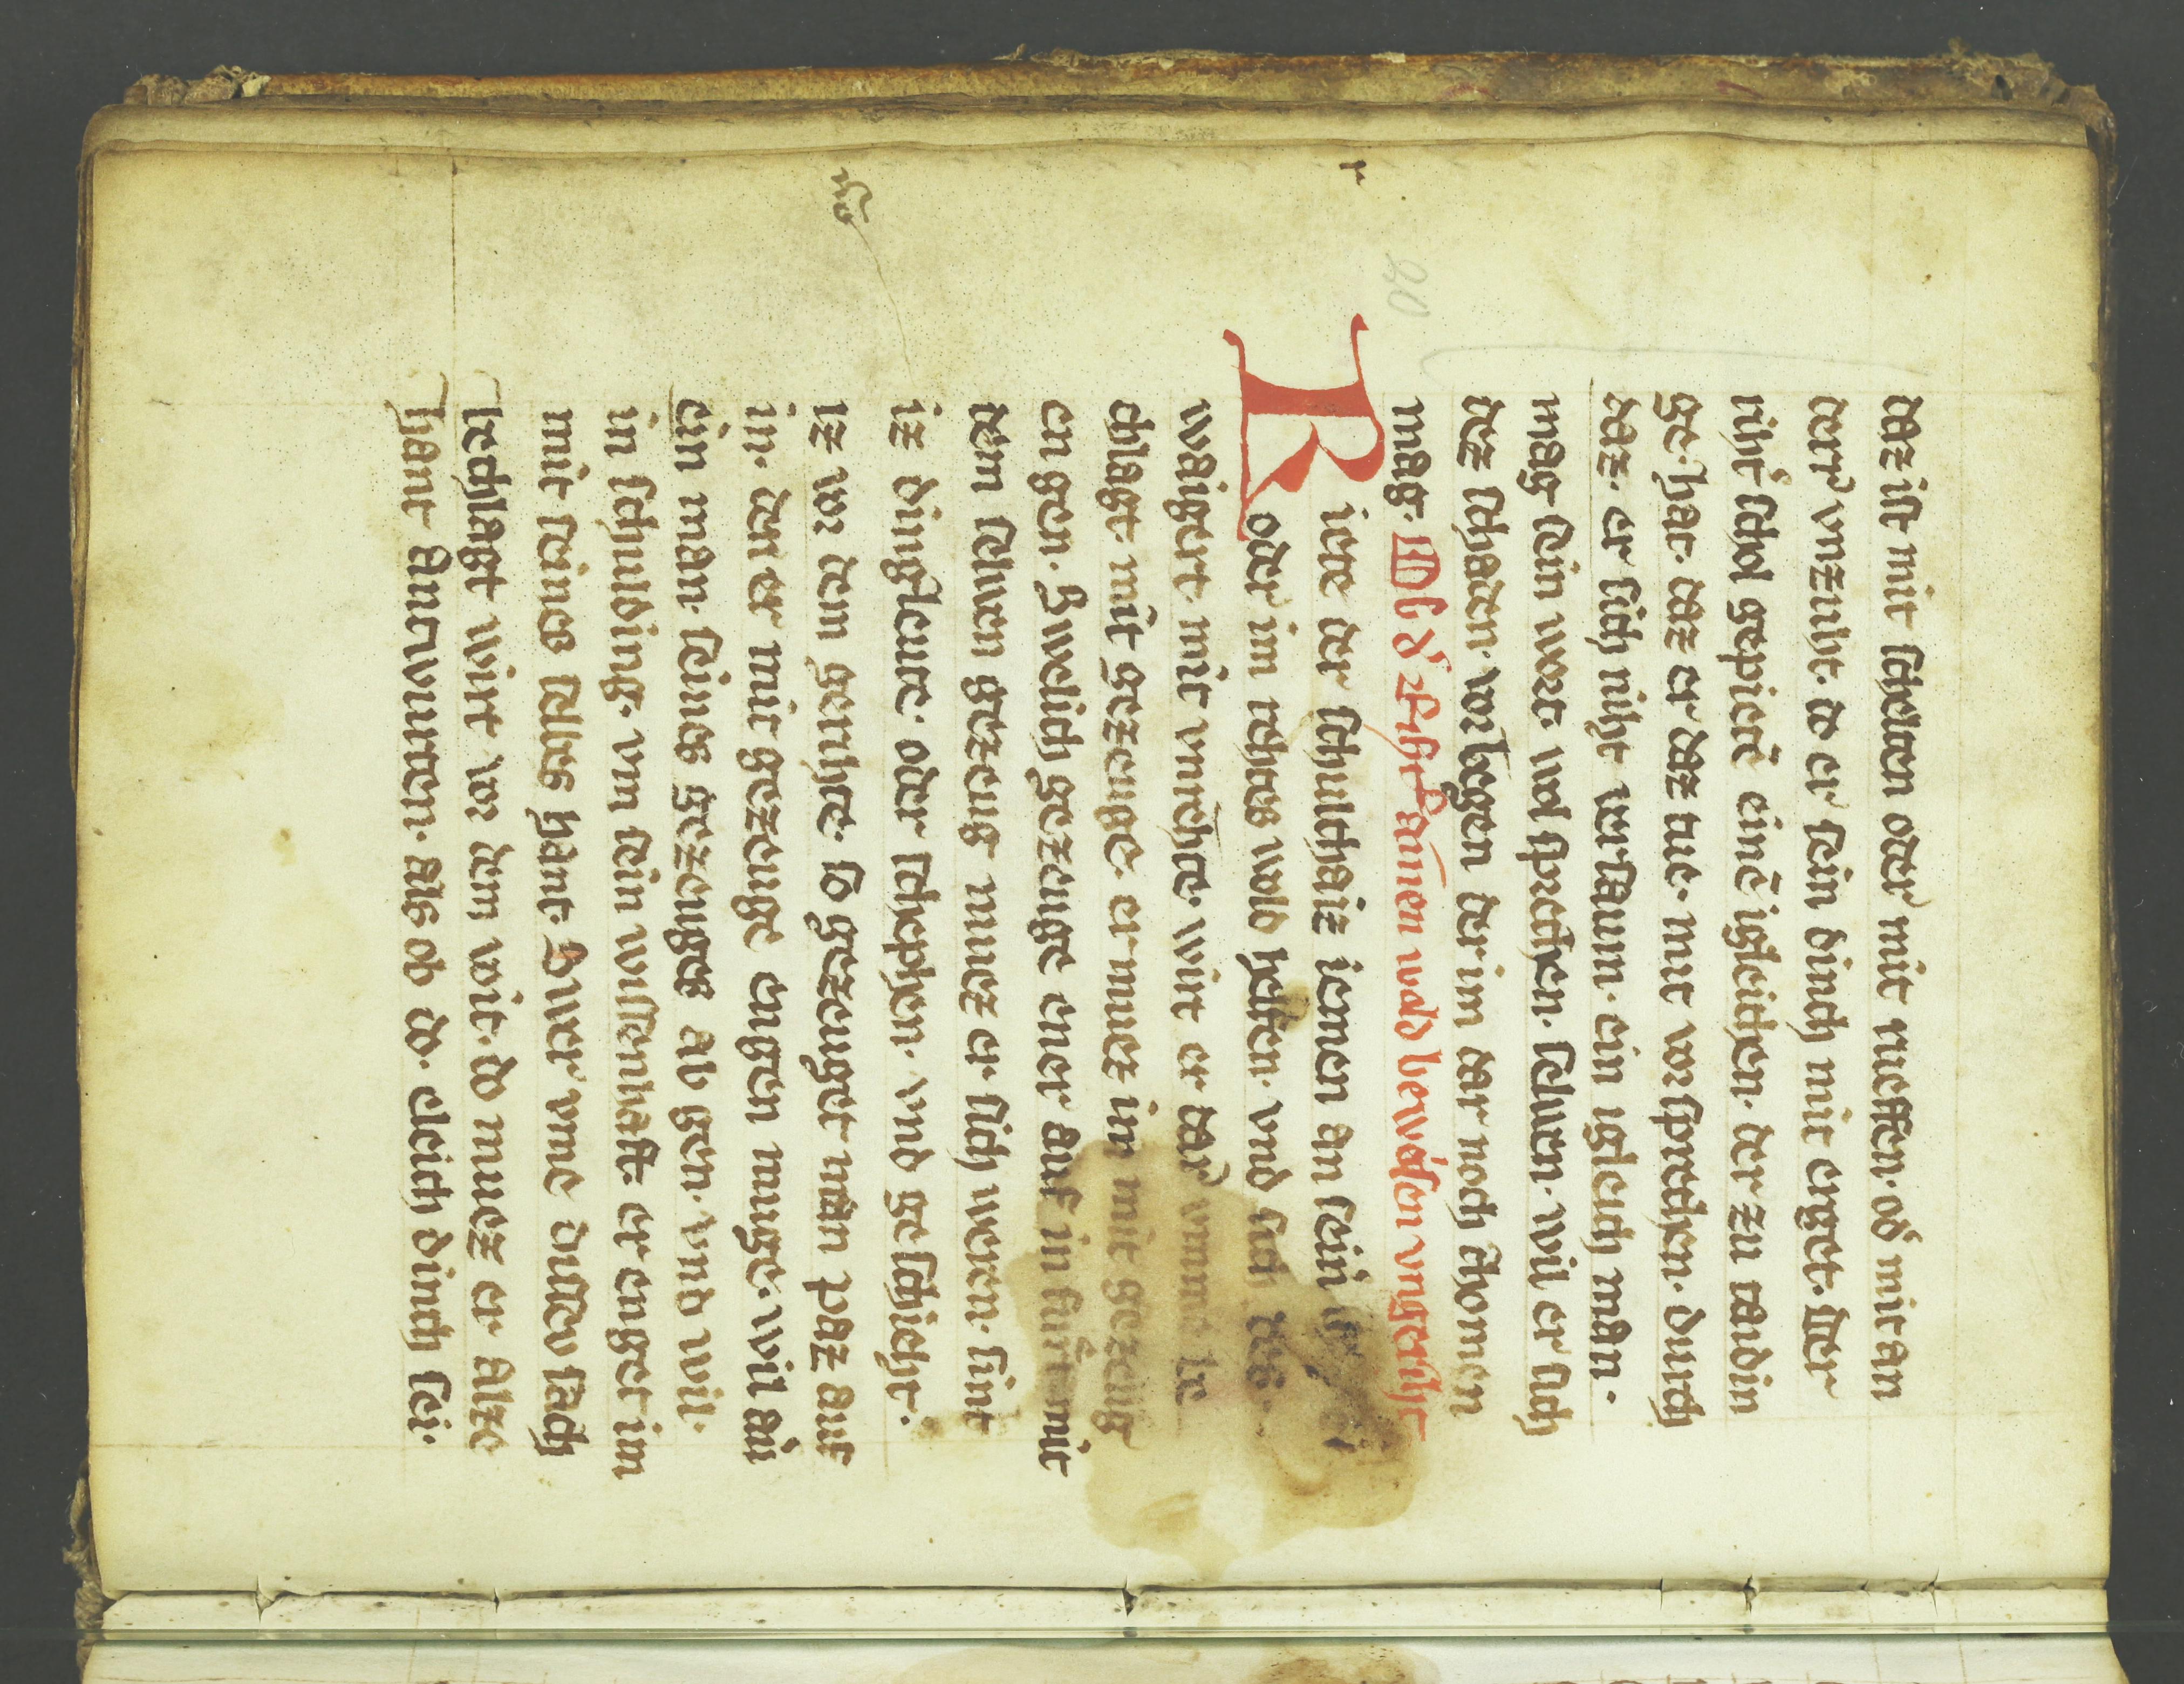 daz ist mit schelten oder mit rueffen. od᷎ mit an
derr᷎ vnzuht. do er sein dinch mit enget. Der
riht᷎ schol gepietē einē igleichen. der zu taidin
ge. hat. daz er daz tue. mit vorsprechen. durch
daz. er sich niht versaum. ein igleich man.
mag sein wort wol sprechen. selwen. wil er sich
dez schaden. vorbegen der im dar noch chomen
mag. Ob d᷎ ieman wold bewæisen vngeriht
Riete der schulthaiz iemen an sein
oder im rehtes wold helfen. vnd sich des.
waigert mit vnrehte. wirt er dar vmme be
chlagt mit gezeuge. er muez in mit gezeug
en gen. Swelich gezeuge einer auf in furt mit
dem selwen gezeug muez er sich weren. sint
iz dingleute. oder schephen. vnd geschieht.
iz vor dem gerihte. so gezeuget man paz auf
in. den er mit gezeuge engen muge. wil ein
ein man seines gezeuges ab gen. vnd wil.
in schulding. vm sein wissenhaft er enget im
mit seines selbes hant. Swer vme dullew sach
bechlagt wirt vor dem voit. do muez er alze
hant antwurten. als ob do. eleich dinch sei.